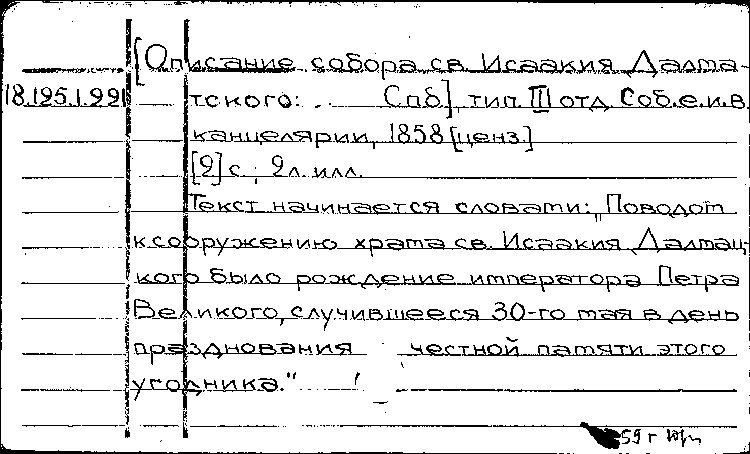 [Описание собора св. Исаакия Далма-
18.195.1.99 тского: Спб], тип. II отд. Соб.е.и.в.
канцелярии, 1858 [ценз.]
[2] с.; 2 л. илл.
Текст начинается словами: "Поводом
к сооружению храма св. Исаакия Далмац-
кого было рождение императора Петра
Великого, случившееся 30-го мая в день
празднования честной памяти этого
угодника."
59 г